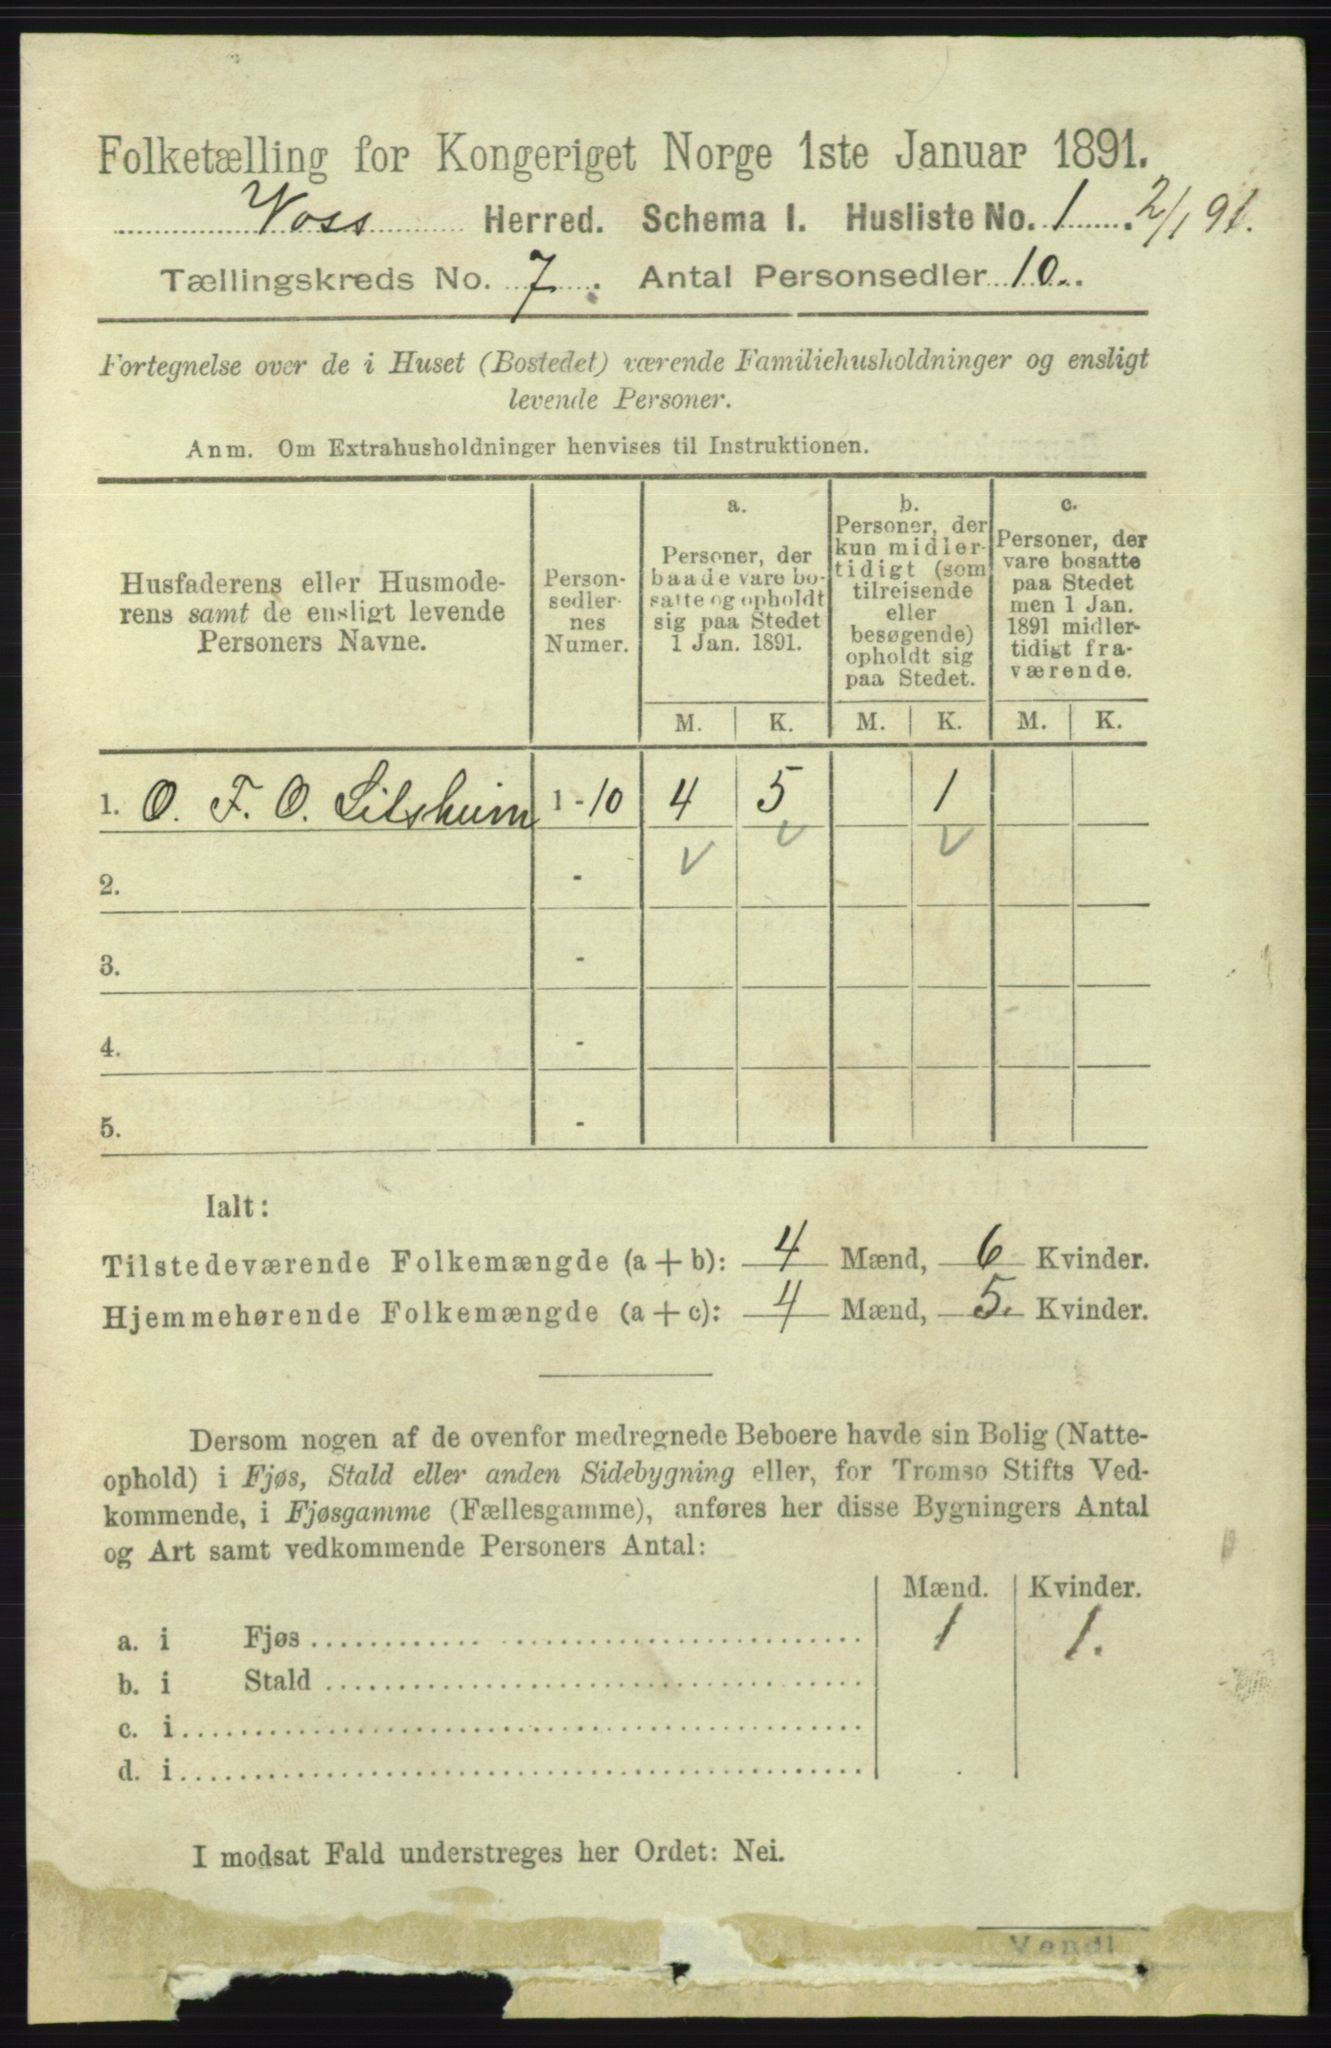 Folketælling for Kongeriget Norge 1ste Januar 1891.
Voss Herred. Schema I. Husliste No. 1. 2/1 91.
Tællingskreds No. 7. Antal Personsedler 10.
Fortegnelse over de i Huset (Bostedet) værende Familiehusholdninger og ensligt
levende Personer.
Anm. Om Extrahusholdninger henvises til Instruktionen.
Husfaderens eller Husmode-
rens samt de ensligt levende
Personers Navne.
Person-
sedler-
nes
Numer.
a.
Personer, der
baade vare bo-
satte og opholdt
sig paa Stedet
1 Jan. 1891.
b.
Personer, der
kun midler-
tidigt (som
tilreisende
eller
besøgende)
opholdt sig
paa Stedet.
c.
Personer, der
vare bosatte
paa Stedet
men 1 Jan.
1891 midler-
tidigt fra-
værende.
M. K. M. K. M. K.
1. O. F. O. Litsheim 1 - 10 4 5 1
2. -
3. -
4. -
5. -
Ialt:
Tilstedeværende Folkemængde (a + b): 4 Mænd, 6 Kvinder.
Hjemmehørende Folkemængde (a + c): 4 Mænd, 5. Kvinder.
Dersom nogen af de ovenfor medregnede Beboere havde sin Bolig (Natte-
ophold) i Fjøs, Stald eller anden Sidebygning eller, for Tromsø Stifts Ved-
kommende, i Fjøsgamme (Fællesgamme), anføres her disse Bygningers Antal
og Art samt vedkommende Personers Antal:
Mænd. Kvinder.
a. i Fjøs 1 1.
b. i Stald
c. i
d. i
I modsat Fald understreges her Ordet: Nei.
Vend!